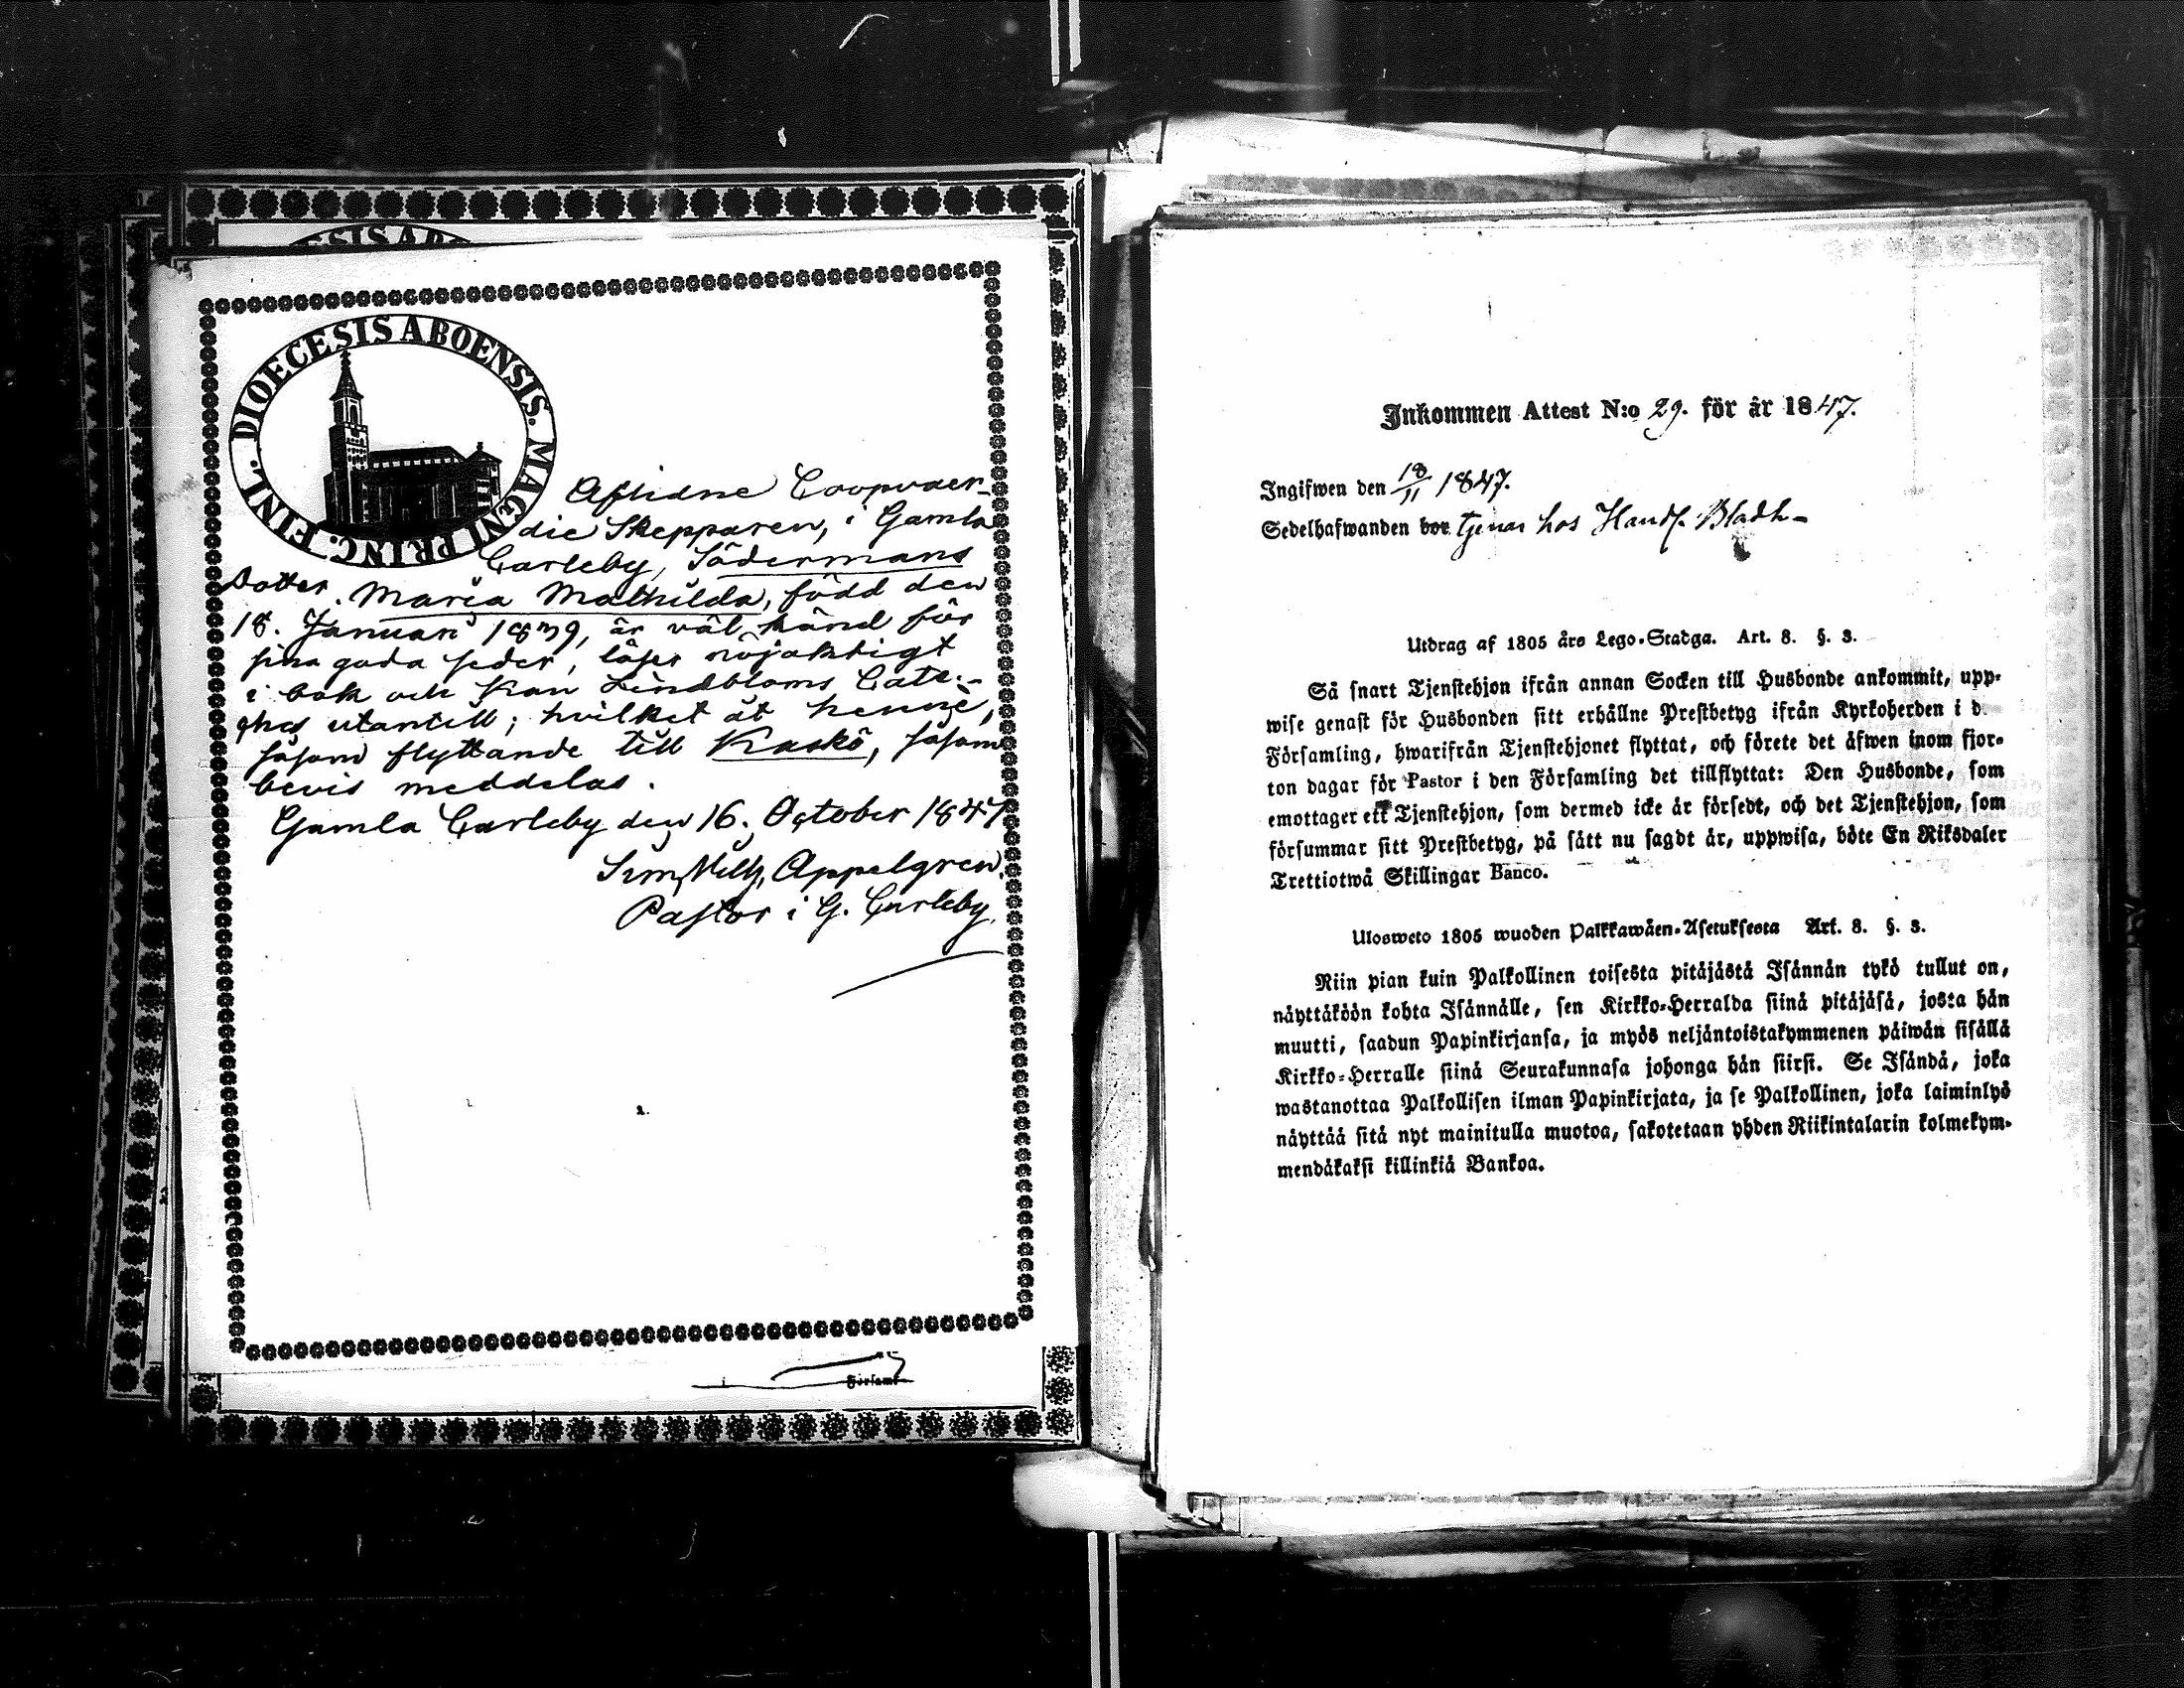 ESIS ABO
DIOECESIS ABOENSIS. MAGNI PRINC. FINL.
Aflidne Coopvaer-
die Skepparen, i Gamla
Carleby, Södermans
Dotter Maria Mathilda, född den
18. Januari 1839, är väl känd för
sina goda seder, läser nöjaktigt
i bok och kan Lindbloms Cate-
ches utantill; hvilket åt henne,
såsom flyttande till Kaskö, såsom
bevis meddelas.
Gamla Carleby den 16. October 1847
Sim. Wilh. Appelgren.
Pastor i G. Carleby.
Församl
Inkommen Attest N:o 29. för år 1847.
Ingifwen den 18/11 1847.
Sedelhafwanden bor tjenar hos Handl. Bladh-
Utdrag af 1805 års Lego-Stadga. Art. 8. §. 3.
Så snart Tjenstehjon ifrån annan Socken till Husbonde ankommit, upp-
wise genast för Husbonden sitt erhållne Prestbetyg ifrån Kyrkoherden i d
Församling, hwarifrån Tjenstehjonet flyttat, och förete det äfwen inom fjor-
ton dagar för Pastor i den Församling det tillflyttat: Den Husbonde, som
emottager ett Tjenstehjon, som dermed icke är försedt, och det Tjenstehjon, som
försummar sitt Prestbetyg, på sätt nu sagdt är, uppwisa, böte En Riksdaler
Trettiotwå Skillingar Banco.
Ulosweto 1805 wuoden Palkkawäen-Asetuksesta Art. 8. §. 3.
Niin pian kuin Palkollinen toisesta pitäjästä Isännän tykö tullut on,
näyttäköön kohta Isännälle, sen Kirkko-Herralda siinä pitäjäsä, josta hän
muutti, saadun Papinkirjansa, ja myös neljäntoistakymmenen päiwän sisällä
Kirkko-Herralle siinä Seurakunnasa johonga hän siirsi. Se Isändä, joka
wastanottaa Palkollisen ilman Papinkirjata, ja se Palkollinen, joka laiminlyö
näyttää sitä nyt mainitulla muotoa, sakotetaan yhden Riikintalarin kolmekym-
mendäkaksi killinkiä Bankoa.